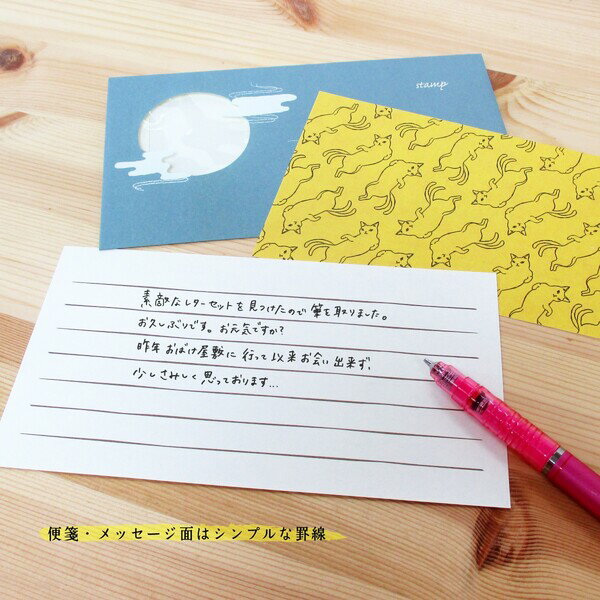 stamp
素敵なレターセットを見つけたので筆を取りました。
お久しぶりです。お元気ですか?
昨年おばけ屋敷に行って以来お会い出来ず、
少しさみしく思っております…
便箋・メッセージ面はシンプルな罫線